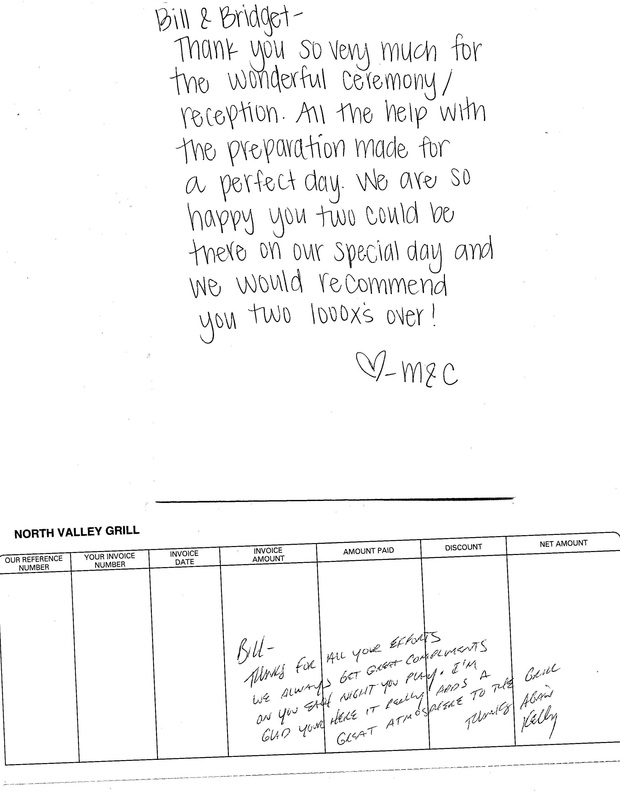 Bill & Bridget-
Thank you so very much for
the wonderful ceremony/
reception. All the help with
the preparation made for
a perfect day. We are so
happy you two could be
there on our special day and
we would recommend
you two 1000x's over!
♡-M&C
NORTH VALLEY GRILL
OUR REFERENCE NUMBER YOUR INVOICE NUMBER INVOICE DATE INVOICE AMOUNT AMOUNT PAID DISCOUNT NET AMOUNT
Bill-
THANKS FOR ALL YOUR EFFORTS
WE ALWAYS GET GREAT COMPLIMENTS
ON YOU EACH NIGHT YOU PLAY. I'M
GLAD YOUR HERE IT REALLY ADDS A
GREAT ATMOSPHERE TO THE GRILL
THANKS AGAIN
Kelly